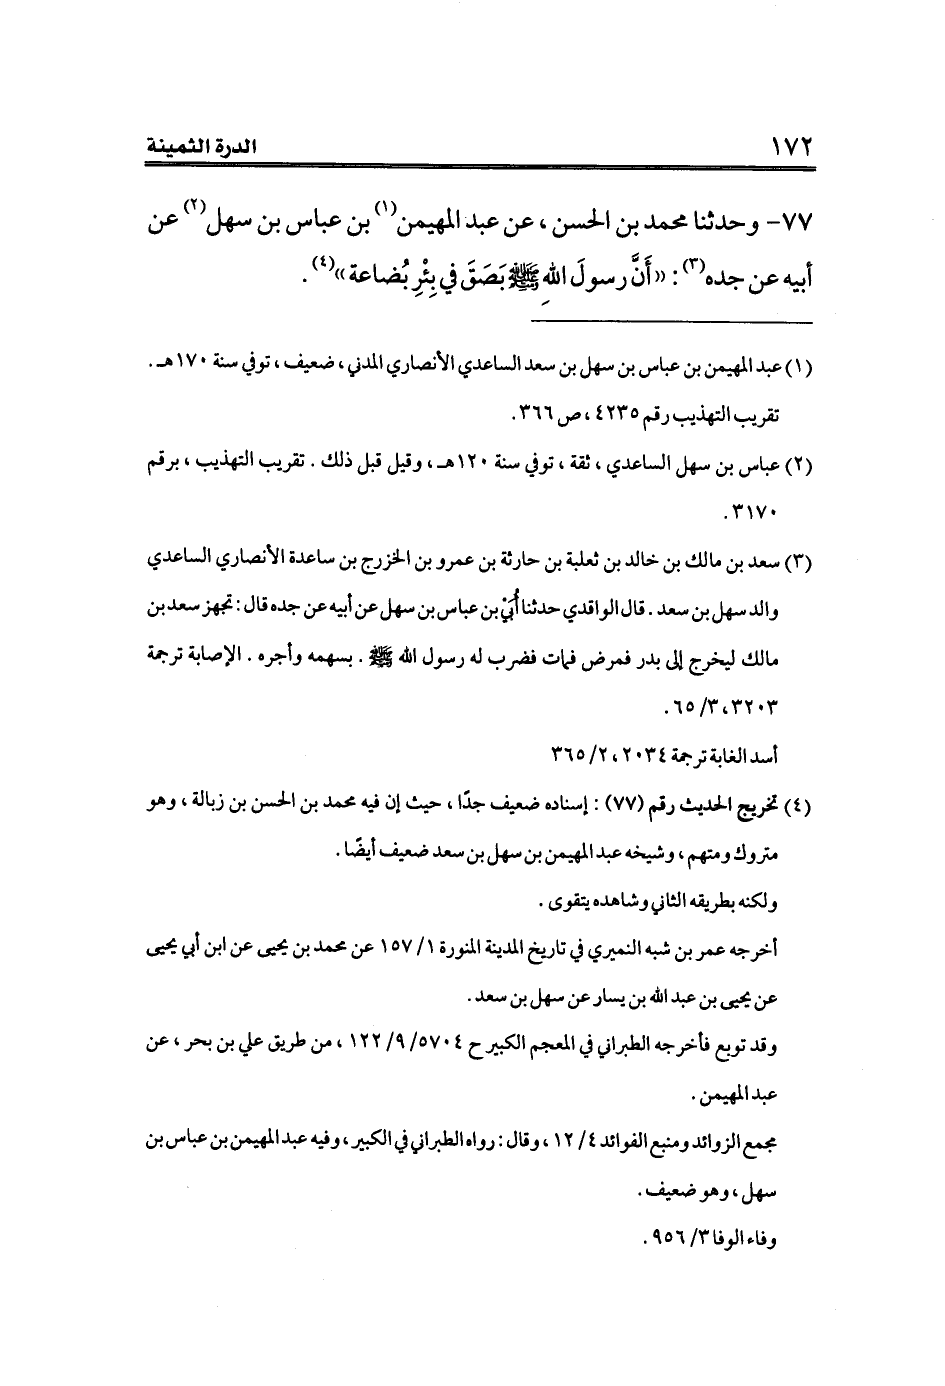 ١٧٢ الدرة الثمينة
٧٧- وحدثنا محمد بن الحسن ، عن عبد المهيمن(١) بن عباس بن سهل(٢) عن
أبيه عن جده(٣) : «أَنَّ رسولَ اللهِ ﷺ بَصَقَ في بِئْرِ بُضاعة»(٤) .
(١) عبد المهيمن بن عباس بن سهل بن سعد الساعدي الأنصاري المدني ، ضعيف ، توفي سنة ١٧٠هـ .
تقريب التهذيب رقم ٤٢٣٥ ، ص ٣٦٦ .
(٢) عباس بن سهل الساعدي ، ثقة ، توفي سنة ١٢٠هـ ، وقيل قبل ذلك . تقريب التهذيب ، برقم
٣١٧٠ .
(٣) سعد بن مالك بن خالد بن ثعلبة بن حارثة بن عمرو بن الخزرج بن ساعدة الأنصاري الساعدي
والد سهل بن سعد . قال الواقدي حدثنا أُبَيْ بن عباس بن سهل عن أبيه عن جده قال : تجهز سعد بن
مالك ليخرج إلى بدر فمرض فمات فضرب له رسول الله ﷺ . بسهمه وأجره . الإصابة ترجمة
٣٢٠٣ ، ٣/ ٦٥ .
أسد الغابة ترجمة ٢٠٣٤ ، ٢/ ٣٦٥
(٤) تخريج الحديث رقم (٧٧) : إسناده ضعيف جدًا ، حيث إن فيه محمد بن الحسن بن زبالة ، وهو
متروك ومتهم ، وشيخه عبد المهيمن بن سهل بن سعد ضعيف أيضًا .
ولكنه بطريقه الثاني وشاهده يتقوى .
أخرجه عمر بن شبه النميري في تاريخ المدينة المنورة ١/ ١٥٧ عن محمد بن يحيى عن ابن أبي يحيى
عن يحيى بن عبد الله بن يسار عن سهل بن سعد .
وقد توبع فأخرجه الطبراني في المعجم الكبير ح ٥٧٠٤/ ٩/ ١٢٢ ، من طريق علي بن بحر ، عن
عبد المهيمن .
مجمع الزوائد ومنبع الفوائد ٤/ ١٢ ، وقال : رواه الطبراني في الكبير ، وفيه عبد المهيمن بن عباس بن
سهل ، وهو ضعيف .
وفاء الوفا ٣/ ٩٥٦ .